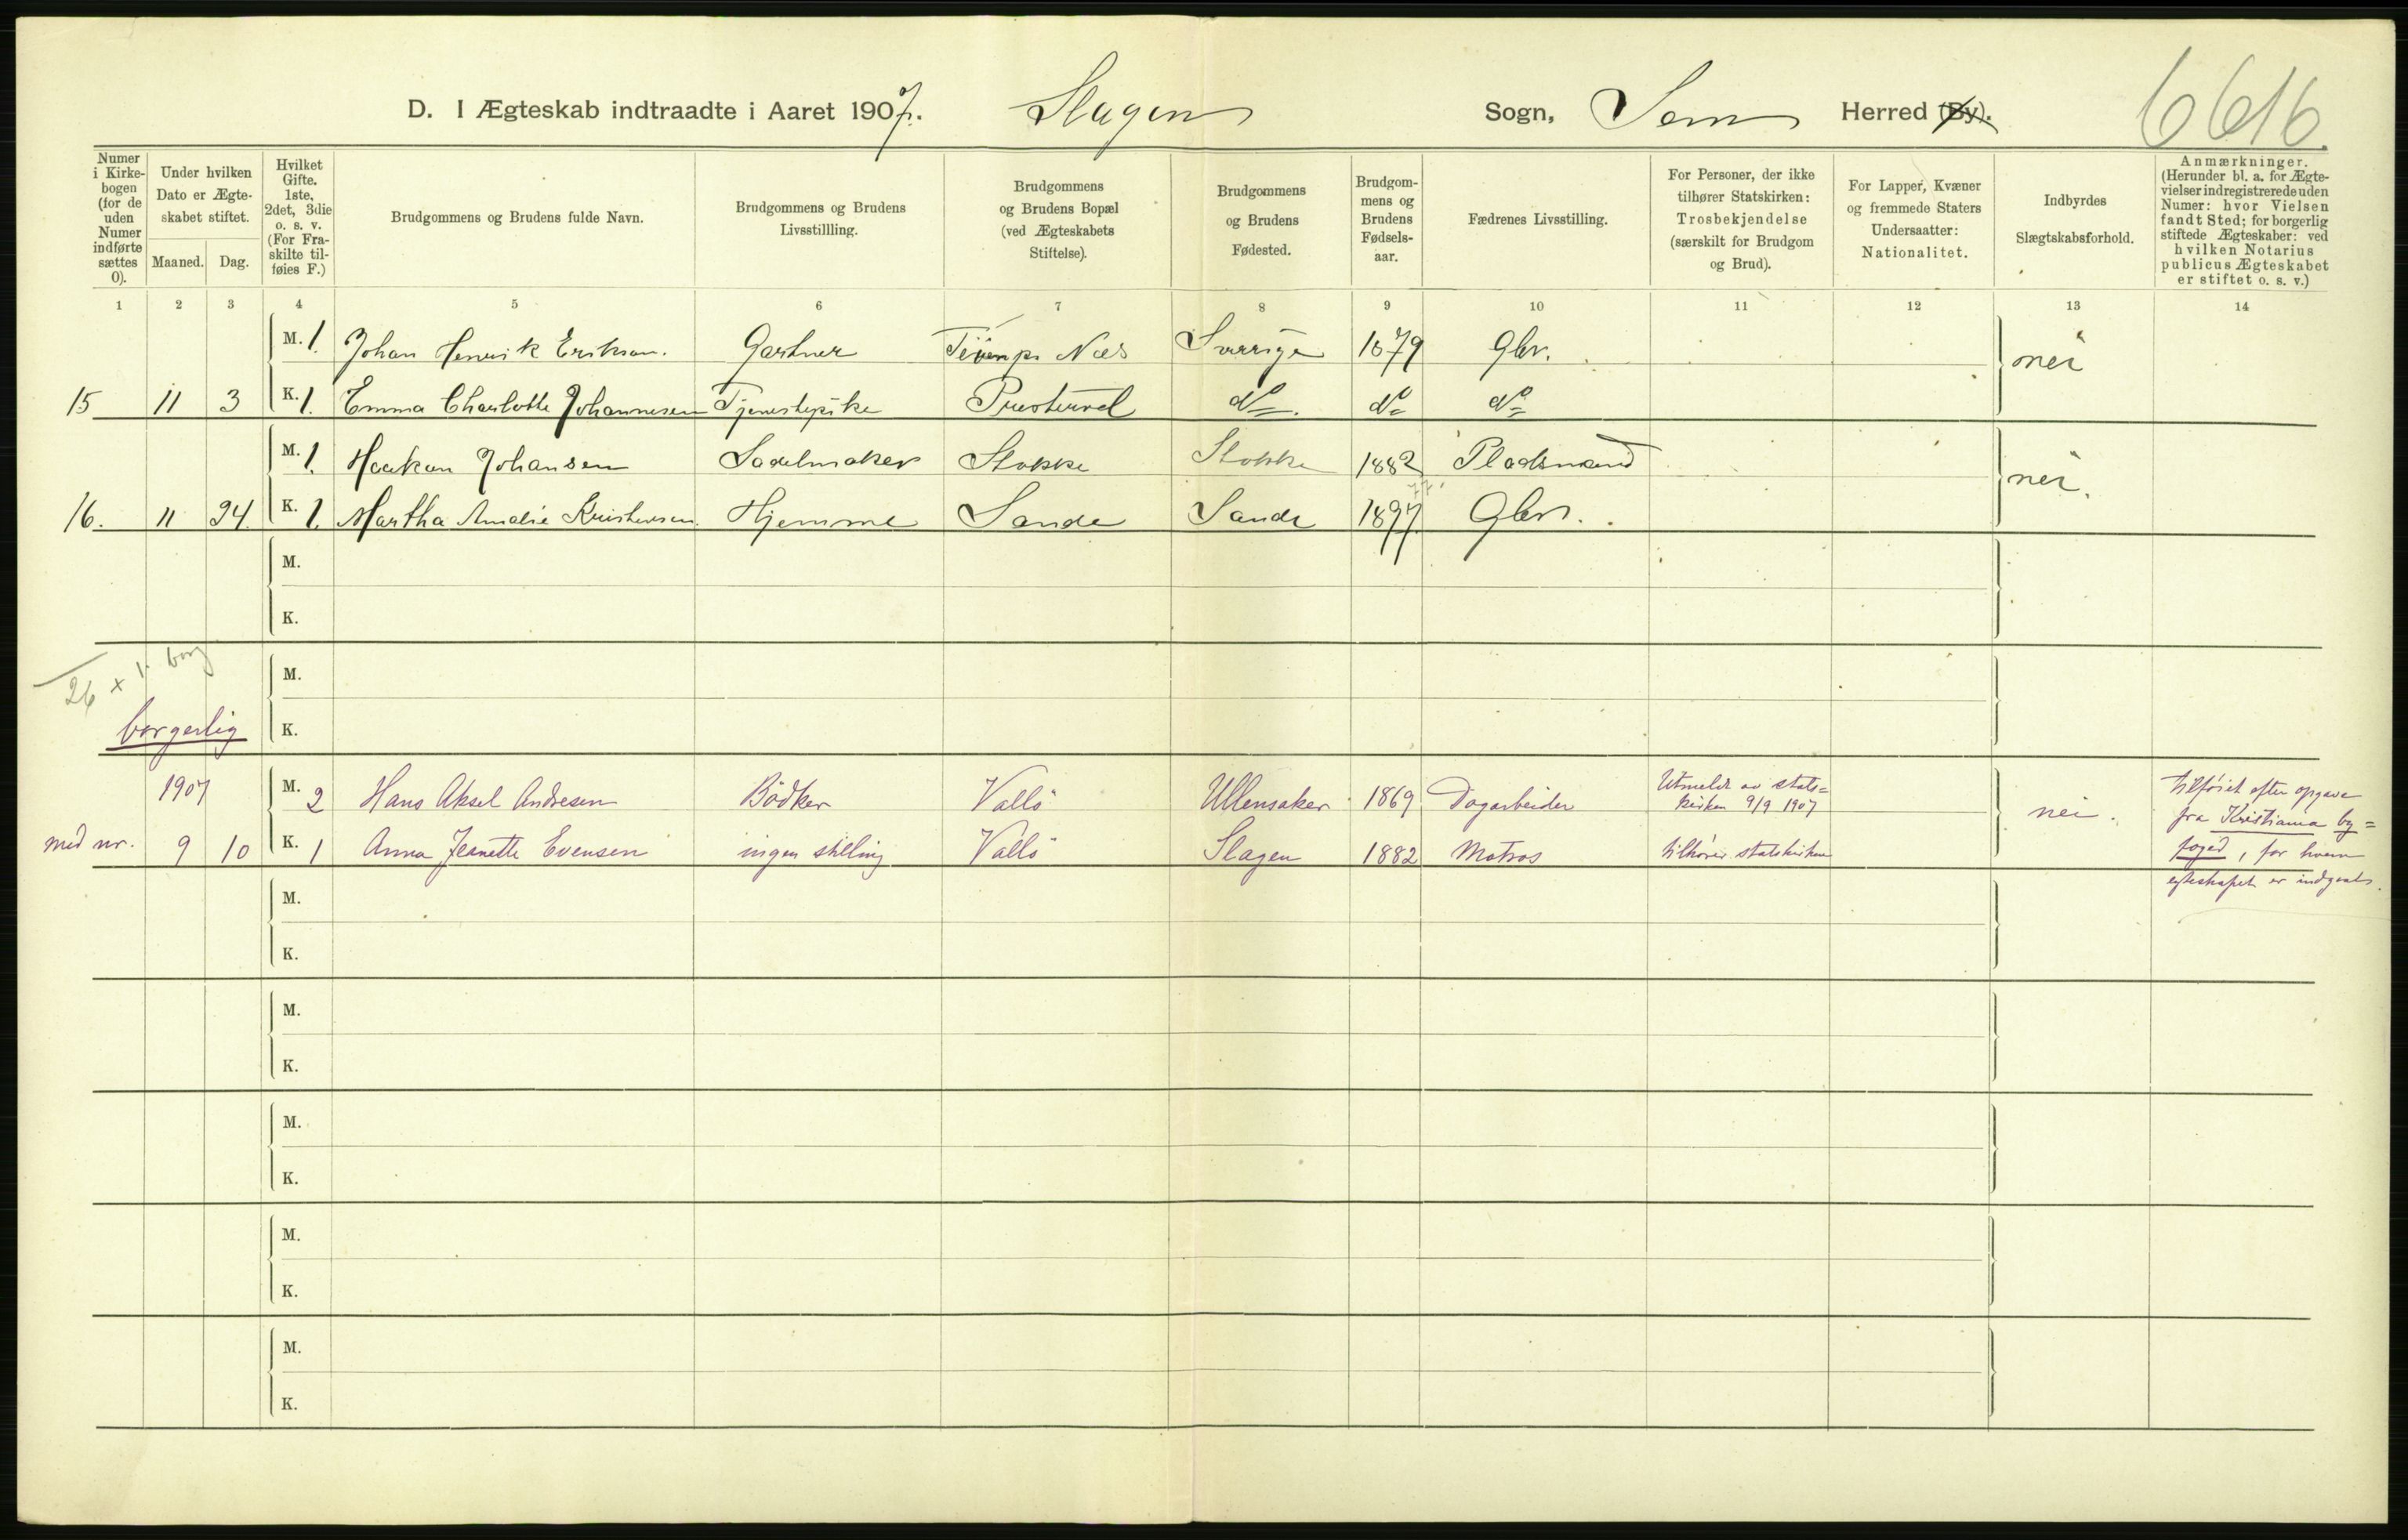 D. I Ægteskab indtraadte i Aaret 1907. Slagen Sogn, Sem Herred (By). 6616.
Numer i Kirkebogen (for de uden Numer indførte sættes 0).
Under hvilken Dato er Ægteskabet stiftet.
Maaned. Dag.
Hvilket Gifte. 1ste, 2det, 3die o. s. v. (For Fraskilte tilføies F.)
Brudgommens og Brudens fulde Navn.
Brudgommens og Brudens Livsstillling.
Brudgommens og Brudens Bopæl (ved Ægteskabets Stiftelse).
Brudgommens og Brudens Fødested.
Brudgommens og Brudens Fødselsaar.
Fædrenes Livsstilling.
For Personer, der ikke tilhører Statskirken: Trosbekjendelse (særskilt for Brudgom og Brud).
For Lapper, Kvæner og fremmede Staters Undersaatter: Nationalitet.
Indbyrdes Slægtskabsforhold.
Anmærkninger. (Herunder bl. a. for Ægtevielser indregistrerede uden Numer: hvor Vielsen fandt Sted; for borgerlig stiftede Ægteskaber: ved hvilken Notarius publicus Ægteskabet er stiftet o. s. v.)
1 2 3 4 5 6 7 8 9 10 11 12 13 14
M. 1. Johan Henrik Erikson. Gartner Næs Sverrige 1879 Gbr. nei
15 11 3 K. 1. Emma Charlotte Johannesen Tjenestepike Presterød do. do do
M. 1. Haakon Johansen Sadelmaker Stokke Stokke 1882 Pladsmand nei.
77
16. 11 24. K. 1. Martha Amalie Kristensen. Hjemme Sande Sande 1897 Gbr.
M.
K.
26 + 1 borg
M.
borgerlig K.
1907 M. 2 Hans Aksel Andresen Bödker Vallö Ullensaker 1869 Dagarbeider Utmeldt av statskirken 9/9 1907 nei.
med nr. 9 10 K. 1 Anna Jeanette Evensen ingen stilling Vallö Slagen 1882 Matros tilhører statskirken
tilföiet efter opgave
fra Kristiania by=
foged, for hvem
egteskapet er indgaat.
M.
K.
M.
K.
M.
K.
M.
K.
M.
K.